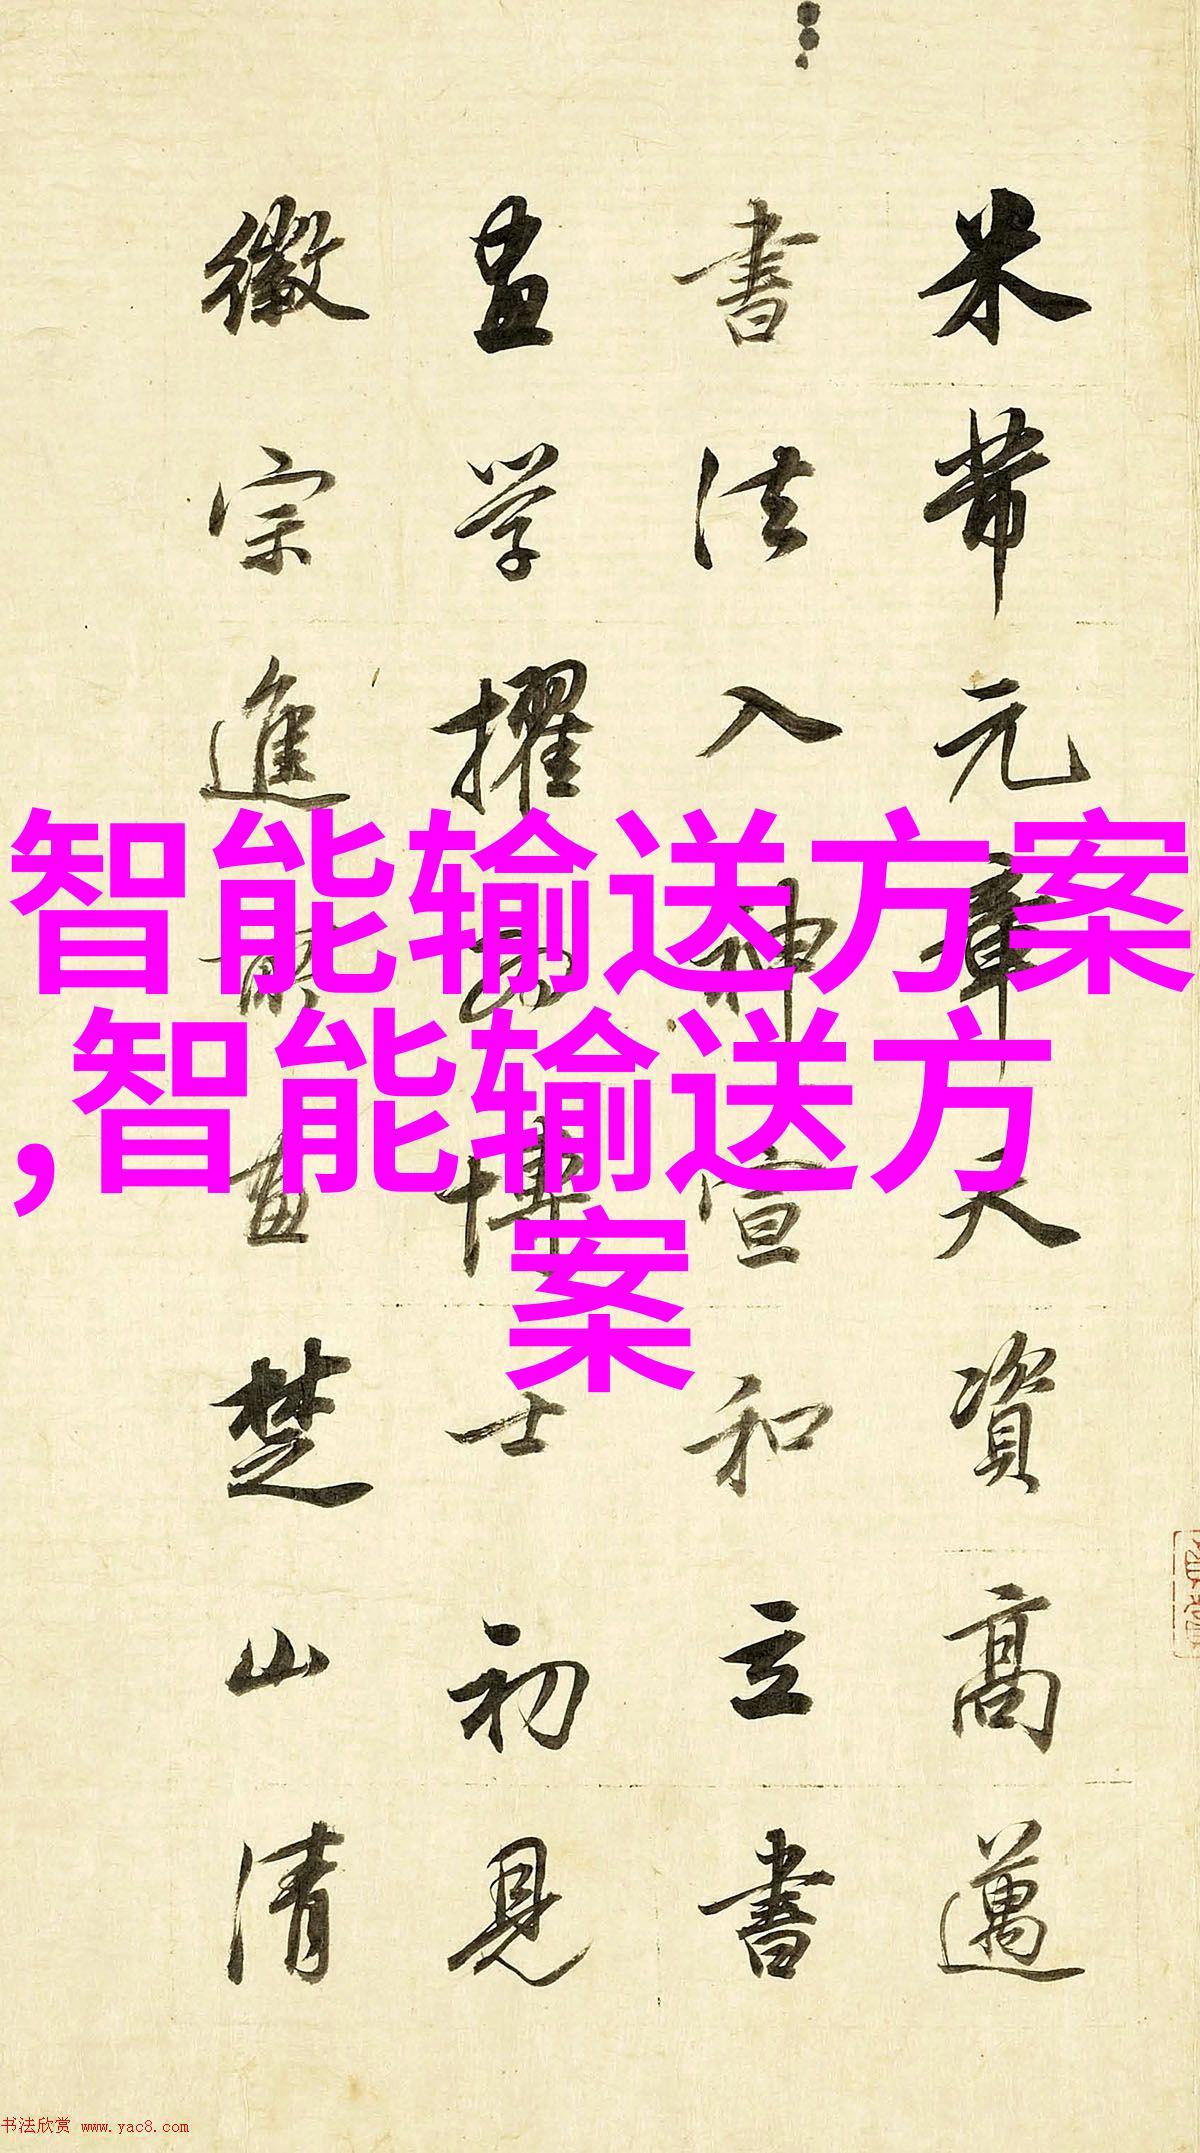 米芾元章天資高邁
書法入神宣和立書
畫学擢為博士初見
徽宗進所畫楚山清
智能输送方案
,智能输送方
案
书法欣赏 www.yac8.com